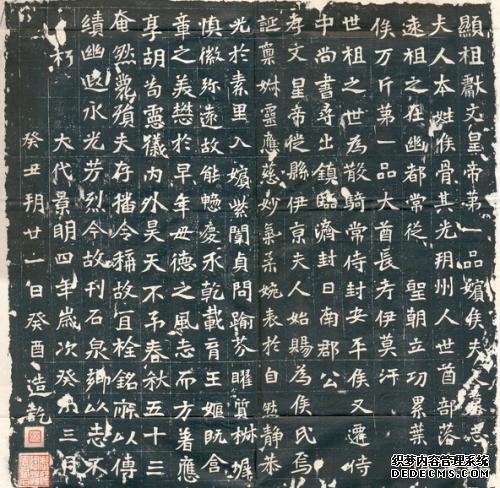 顯祖獻文皇帝第一品嬪侯夫
夫人本姓侯骨其先朔州人世酋部落
遠祖之在幽都常從 聖朝立功累葉
俟万斤第一品大酋長考伊莫汗
世祖之世為散騎常侍封安平侯又遷侍
中尚書尋出鎮臨濟封日南郡公
孝文皇帝徙縣伊京夫人始賜為侯氏焉
誕稟姊靈應慈妙氣柔婉表於自然靜恭
光於素里入嬪紫闈貞問踰芬曜質椒墀
慎徽弥遠故能憁慶承乾載育王姬既含
章之美懋於早年毋德之風志而方著應
享胡耇靈儀內外昊天不予春秋五十三
奄然薨殞夫存播令稱故宜銓銘所以傳
績幽遐永光芳烈今故刊石泉埏以志不
朽 大代景明四年歲次癸未三月
癸丑朔廿一日癸酉 造訖